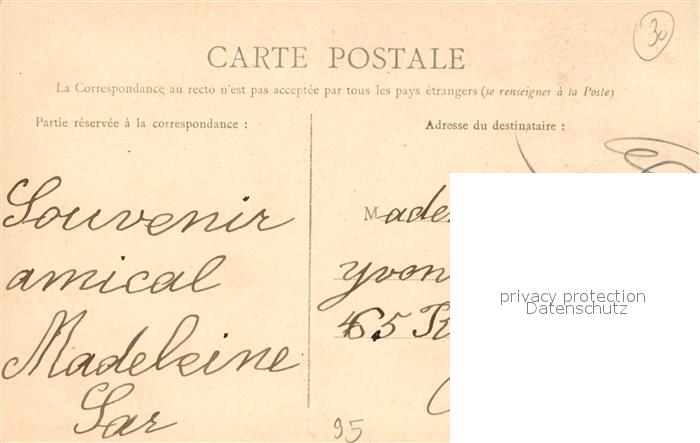 30
CARTE POSTALE
La Correspondance au recto n'est pas acceptée par tous les pays étrangers (se renseigner à la Poste)
Partie réservée à la correspondance :
Adresse du destinataire :
Souvenir
amical
Madeleine
Sar
Made
Yvon
65 R
privacy protection
Datenschutz
95